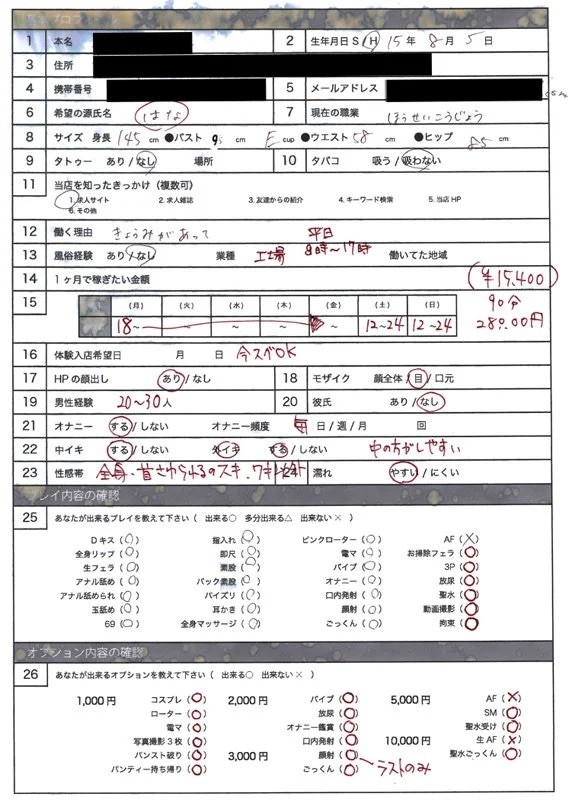 プロフィール
1 本名 2 生年月日 S / H 15 年 8 月 5 日
3 住所
4 携帯番号 5 メールアドレス
6 希望の源氏名 はな 7 現在の職業 ほうせいこうじょう
8 サイズ 身長 145 cm ●バスト cm E cup ●ウエスト 58 cm ●ヒップ 85 cm
9 タトゥー あり / なし 場所 10 タバコ 吸う / 吸わない
11 当店を知ったきっかけ（複数可）
1. 求人サイト 2. 求人雑誌 3. 友達からの紹介 4. キーワード検索 5. 当店 HP
6. その他
12 働く理由 きょうみがあって 平日
13 風俗経験 あり / なし 業種 工場 8時〜17時 働いてた地域
14 1ヶ月で稼ぎたい金額 （¥15,400）
15 （月） （火） （水） （木） （金） （土） （日） 90分
18〜 〜 〜 〜 〜 12〜24 12〜24 28000円
16 体験入店希望日 月 日 今スぐOK
17 HPの顔出し あり / なし 18 モザイク 顔全体 / 目 / 口元
19 男性経験 20〜30 人 20 彼氏 あり / なし
21 オナニー する / しない オナニー頻度 毎 日 / 週 / 月 回
22 中イキ する / しない 外イキ する / しない 中の方がしやすい
23 性感帯 全身・首さわられるのスキ、ワキ 24 濡れ やすい / にくい
プレイ内容の確認
25 あなたが出来るプレイを教えて下さい（ 出来る○ 多分出来る△ 出来ない× ）
Dキス（○） 指入れ（○） ピンクローター（○） AF（×）
全身リップ（○） 即尺（○） 電マ（○） お掃除フェラ（○）
生フェラ（○） 素股（○） バイブ（○） 3P（○）
アナル舐め（○） バック素股（○） オナニー（○） 放尿（○）
アナル舐められ（○） パイズリ（○） 口内発射（○） 聖水（○）
玉舐め（○） 耳かき（○） 顔射（○） 動画撮影（○）
69（○） 全身マッサージ（○） ごっくん（○） 拘束（○）
オプション内容の確認
26 あなたが出来るオプションを教えて下さい（ 出来る○ 出来ない× ）
1,000円 コスプレ（○） 2,000円 バイブ（○） 5,000円 AF（×）
ローター（○） 放尿（○） SM（○）
電マ（○） オナニー鑑賞（○） 聖水受け（○）
写真撮影3枚（○） 口内発射（○） 10,000円 生AF（×）
パンスト破り（○） 3,000円 顔射（○） 聖水ごっくん（○）
パンティー持ち帰り（○） ごっくん（○） ラストのみ